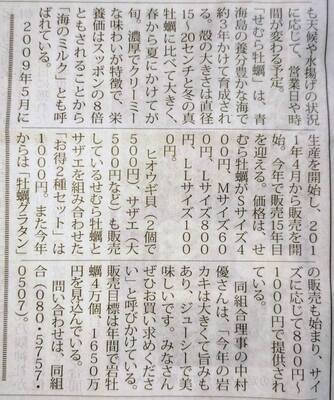 も天候や水揚げの状況
に応じて、営業日や時
間が変わる予定。
「せむら牡蠣」は、青
海島の養分豊かな海で
約3年かけて育成され
る。殻の大きさは直径
15~20センチと冬の真
牡蠣に比べて大きく、
春から夏にかけてが
旬。濃厚でクリーミー
な味わいが特徴で、栄
養価はスッポンの8倍
ともされることから
「海のミルク」とも呼
ばれている。
2009年5月に
生産を開始し、201
1年4月から販売を開
始。今年で販売15年目
を迎える。価格は、せ
むら牡蠣がSサイズ4
00円、Mサイズ60
0円、Lサイズ800
円、LLサイズ100
0円。
ヒオウギ貝（2個で
500円）、サザエ（大
500円など）も販売
しているせむら牡蠣と
サザエを組み合わせた
「お得2種セット」は
1000円。また今年
からは「牡蠣グラタン」
の販売も始まり、サイ
ズに応じて800円~
1000円で提供され
ている。
同組合理事の中村
優さんは、「今年の岩
カキは大きくて旨みも
あり、ジューシーで美
味しいです。みなさん
ぜひお買い求めくださ
い」と呼びかけている。
販売目標は年間で岩牡
蠣4万個、1650万
円を見込んでいる。
問い合わせは、同組
合（080・5757・
0507）。